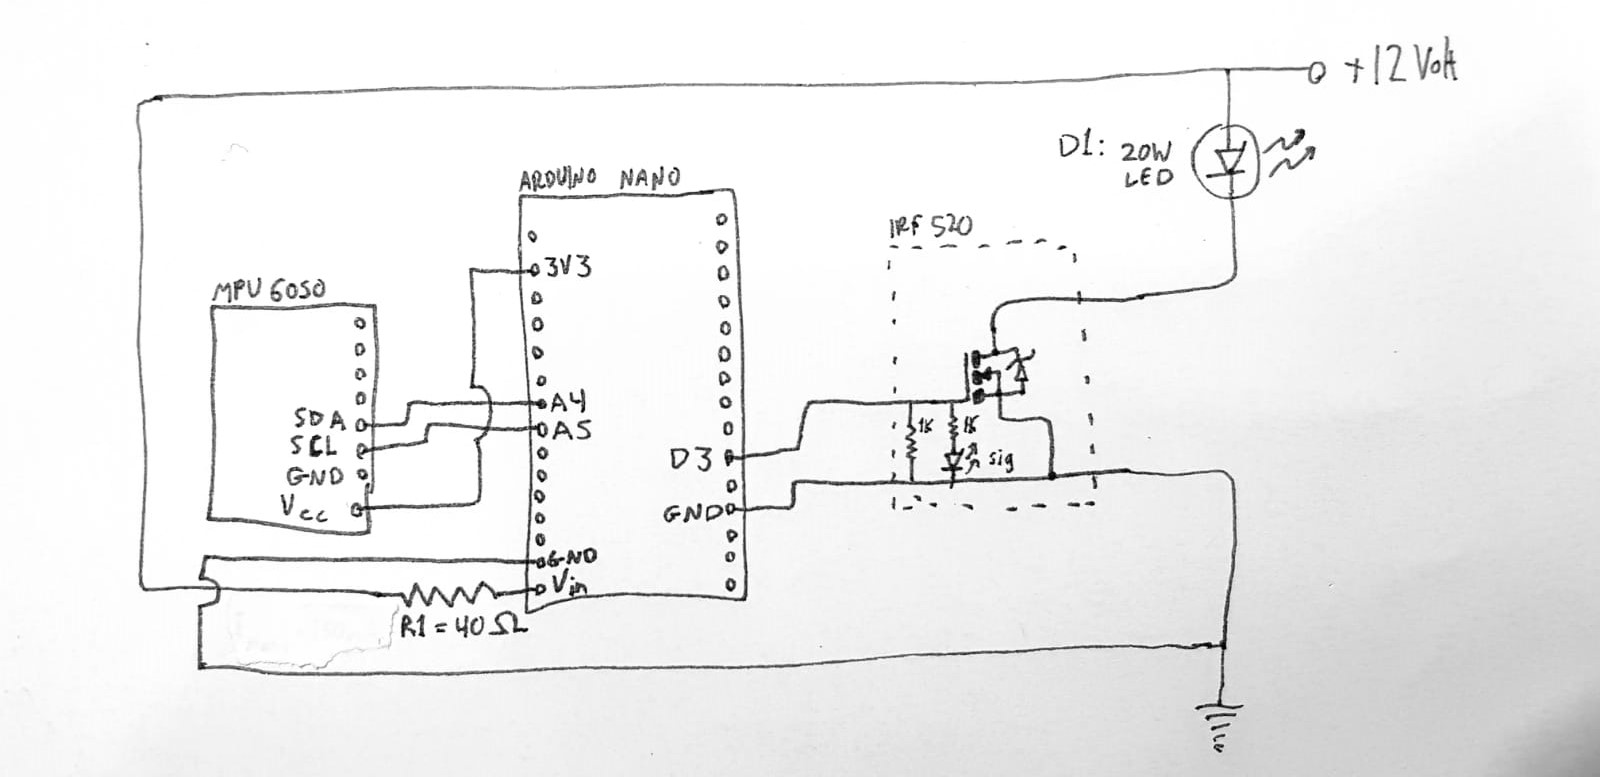 +12 Volt
D1: 20W
LED
ARDUINO NANO
IRF 520
3V3
MPU 6050
A4
SDA
A5
1K
1K
SCL
D3
sig
GND
Vcc
GND
GND
Vin
R1 = 40 Ω